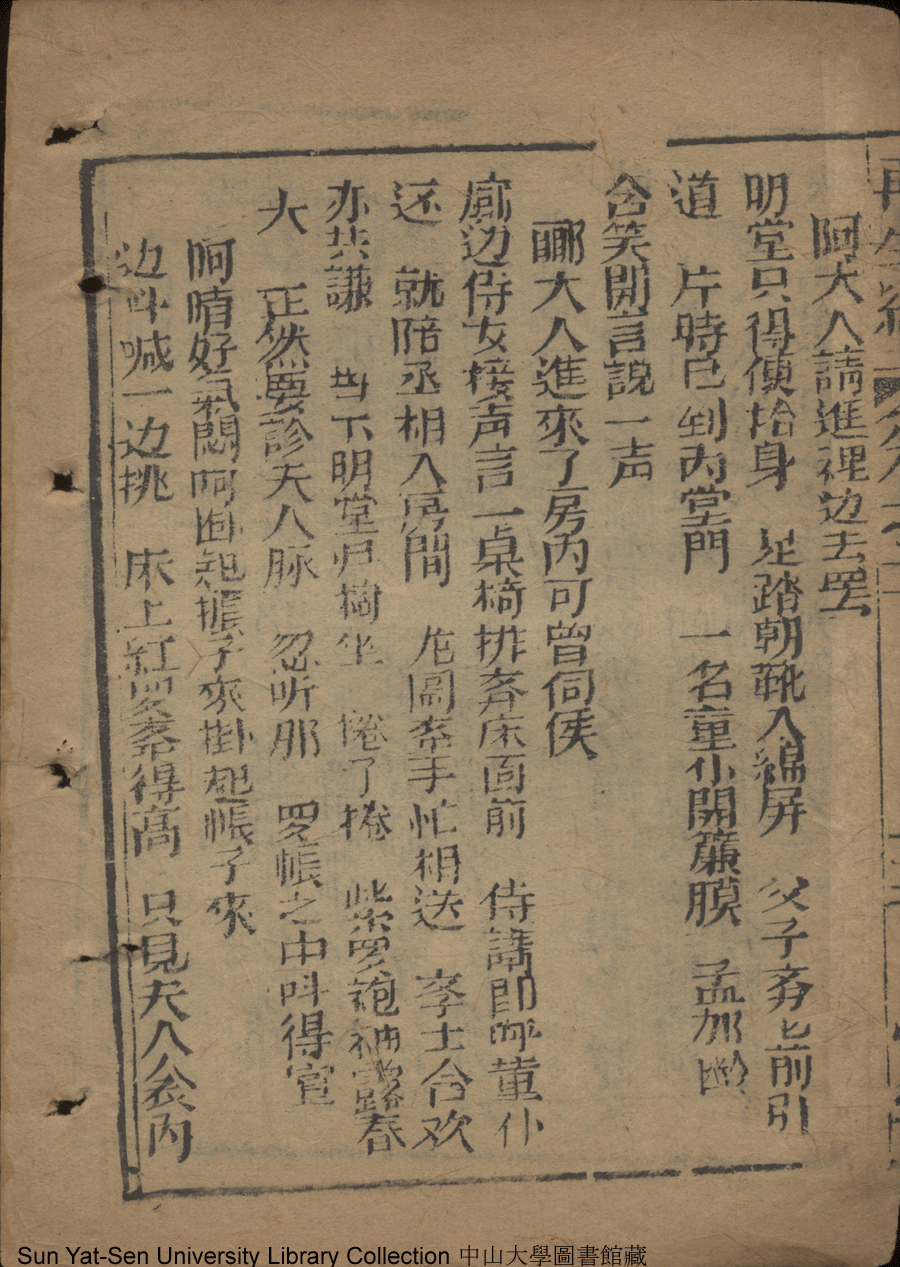 阿大人請進裡边去罢
明堂只得便抬身 足踏朝靴入綿屏 父子斉匕前引
道 片時已到內堂門 一名童仆開簾膜 孟加齡
含笑開言說一声
郦大人進來了房內可曾伺侯
廊边侍女接声言 一桌椅排斉床面前 侍講即呼童仆
还 就陪丞相入房間 龙圖斉手忙相送 李士合欢
亦共謙 当下明堂归椅坐 捲了捲 紫罗袍袖露春
大 正然要診夫人脉 忽听那 罗帳之中叫得宣
阿晴好氣悶阿 振子來掛起帳子來
边叫喊一边挑 床上紅罗奉得高 只見夫人公衣內
Sun Yat-Sen University Library Collection 中山大學圖書館藏